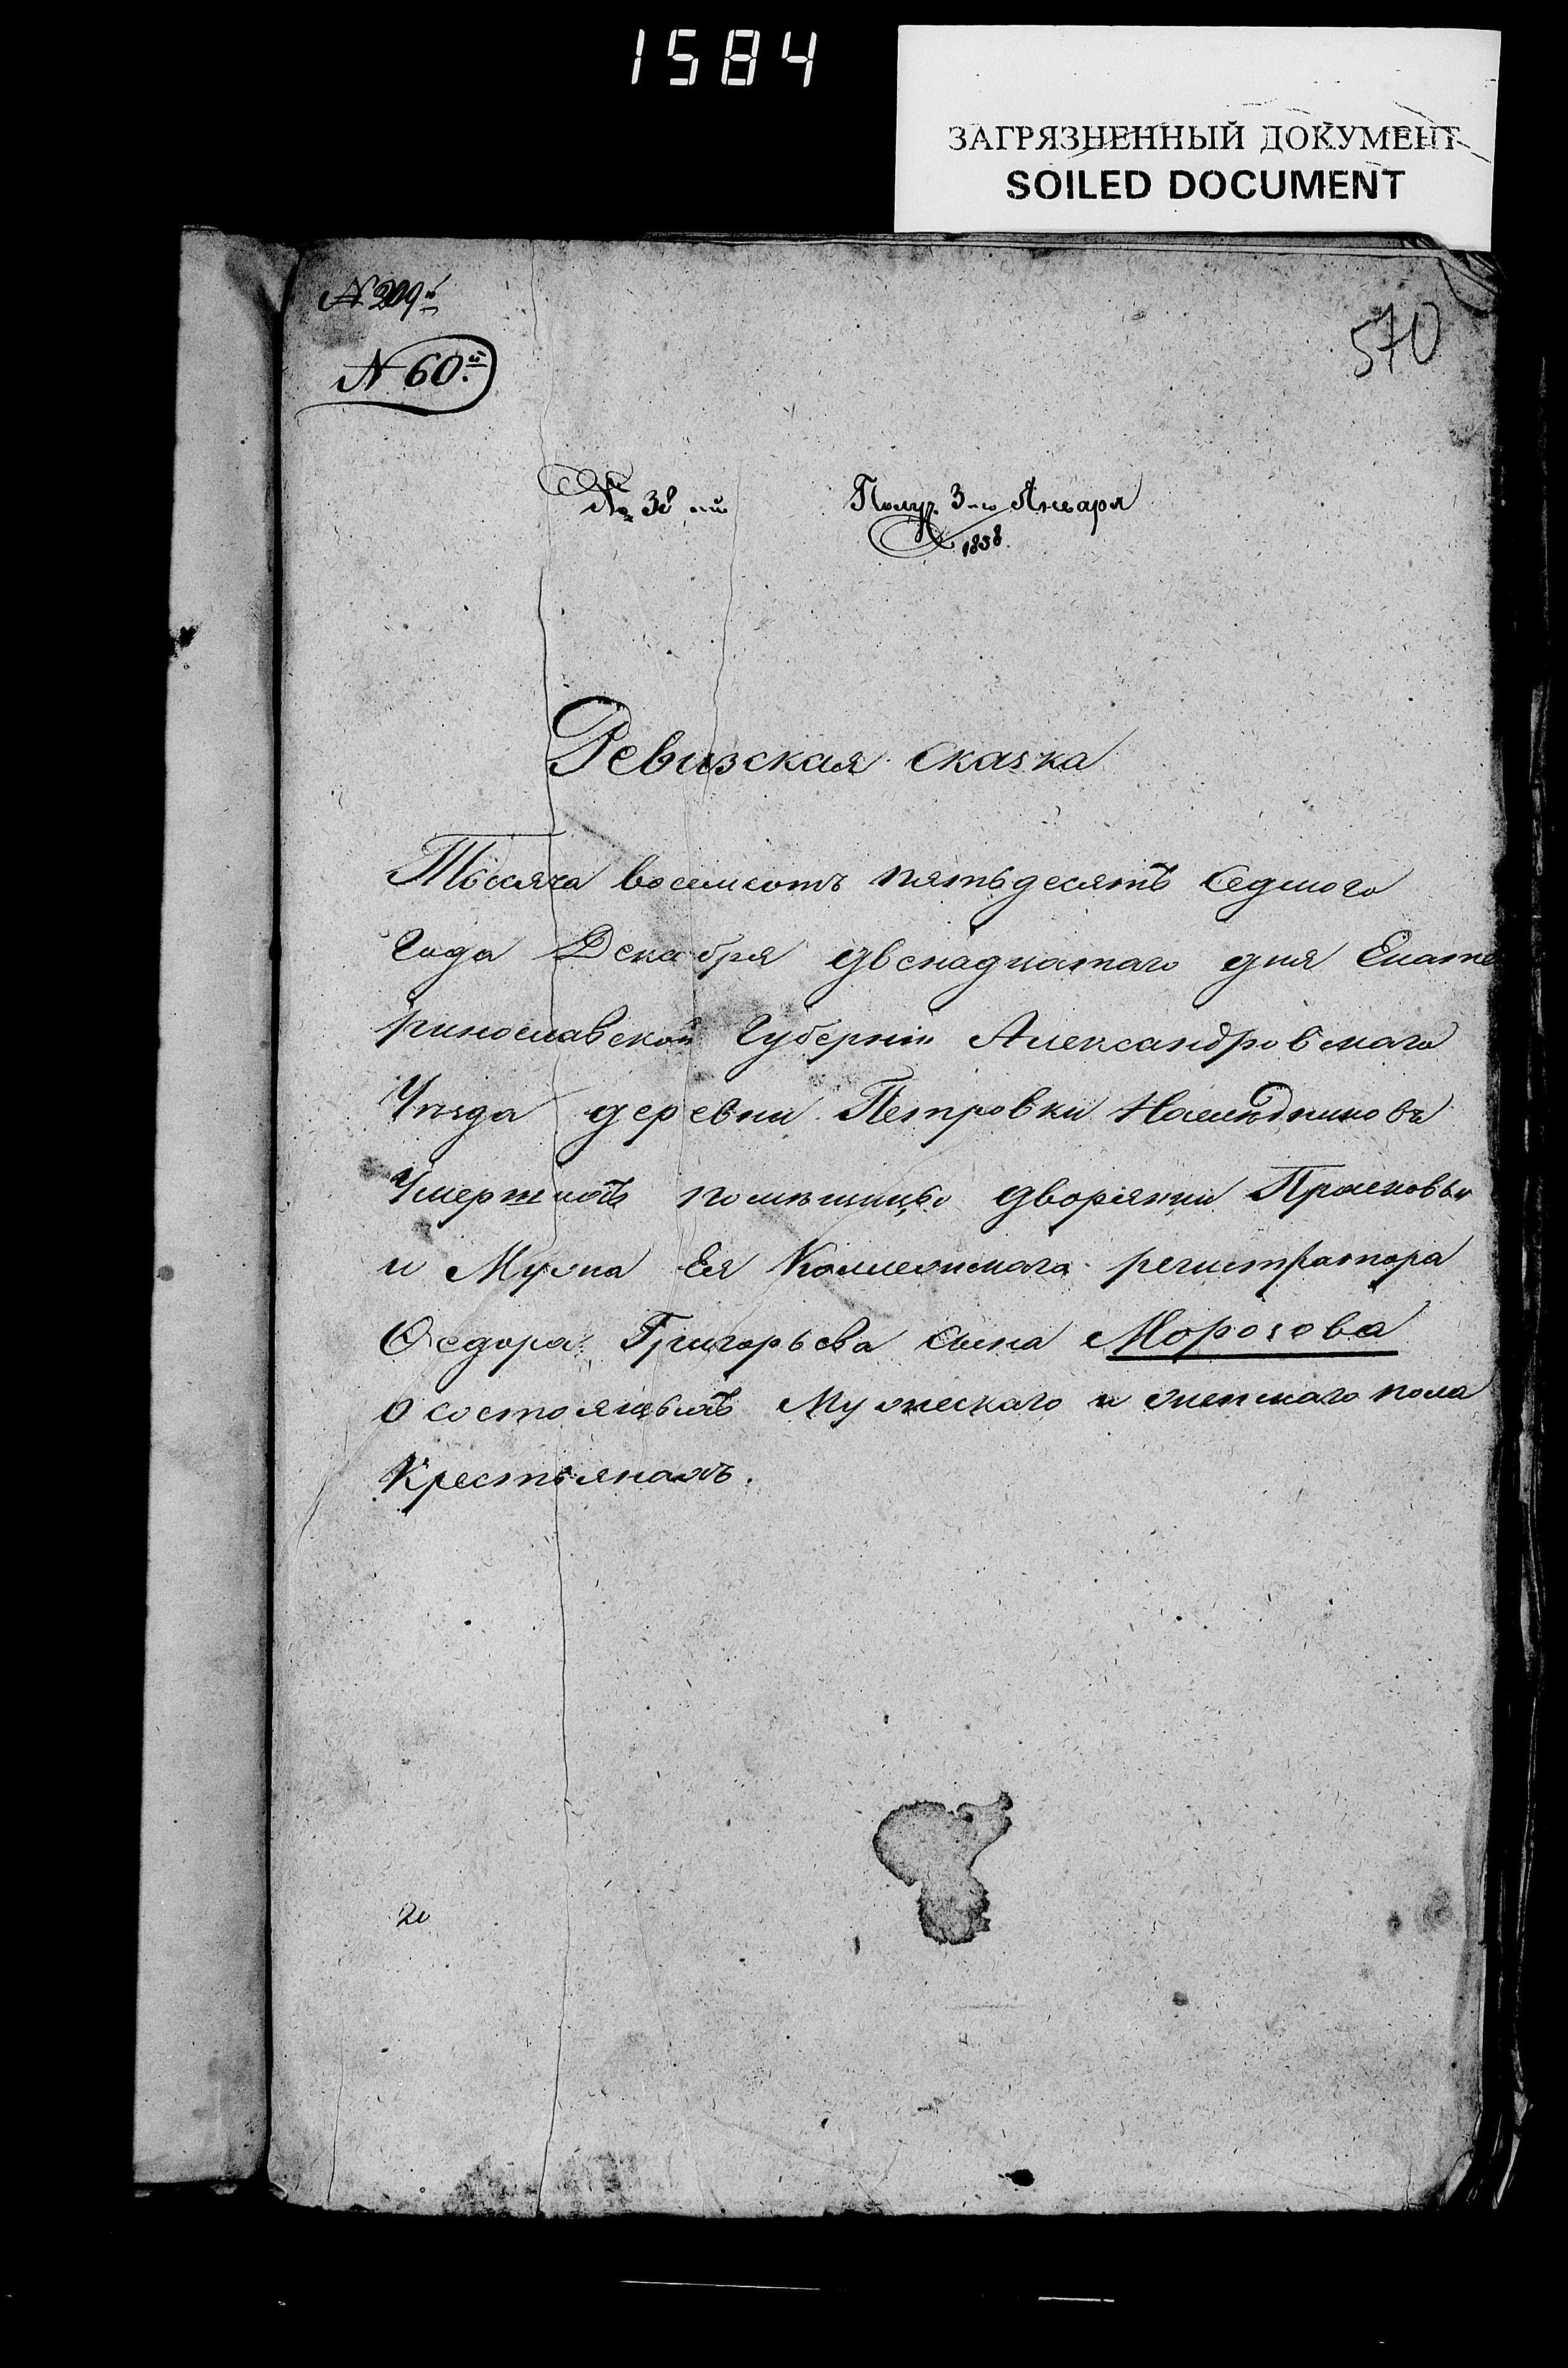 1584
ЗАГРЯЗНЕННЫЙ ДОКУМЕНТ
SOILED DOCUMENT
N 209й
570
N 60.й
№ 38 ий Получ. 3-го Января
1858.
Ревизская сказка
Тысяча восемсотъ пятьдесятъ седмого
года Декабря двенадцатаго дня Екате
ринославской Губерніи Александровскаго
Уѣзда деревни Петровки Наслѣдниковъ
Умершихъ помѣщицы дворянки Прасковьи
и Мужа Ея Коллежскаго регистратора
Федора Григорьева сына Морозова
О состоящихъ Мужескаго и женскаго пола
Крестьянахъ.